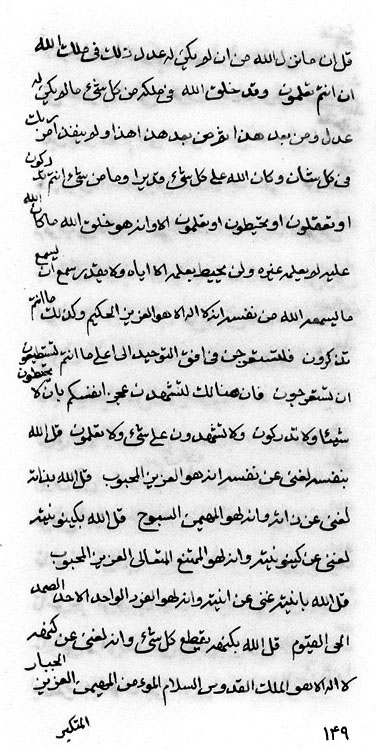 قل ان ما نزل الله من ان لم يكن له عدل ذلك فى ملك الله
ان انتم تعلمون وقد خلق الله فى ملكه من كل شئ ما لم يكن له
عدل ومن بعد هذا من بعد هذا ولم ينفد امر ربك
فى كل شان وكان الله على كل شئ قديرا وما من شئ انتم تدركون
او تعقلون او تحيطون او تعلمون الا وانه هو خلق الله ما كان الله
عليه لم يعلمه غيره ولن يحيط بعلمه الا اياه ولا يقدر ان يسمع
ما ليسمعه الله من نفسه انه لا اله الا هو العزيز الحكيم وكذلك ما انتم
تذكرون فلتستعرجن فى افق التوحيد الى اعلى ما انتم تستطيعون
ان تستعرجون فان هنالك لتشهدن عجز انفسكم بان لا تحيطون
شيئا ولا تدركون ولا تشهدون على شئ ولا تعلمون قل الله
بنفسه لغنى عن نفسه انه هو العزيز المحبوب قل الله بذاته
لغنى عن ذاته وانه لهو المهيمن السبوح قل الله بكينونيته
لغنى عن كينونيته وانه لهو الممتنع المتعالى العزيز المحبوب
قل الله بانيته غنى عن انيته وانه لهو الفرد الواحد الاحد الصمد
الحى القيوم قل الله يقطع كل شئ وانه لغنى عن
لا اله الا هو الملك القدوس السلام المؤمن المهيمن العزيز الجبار
المتكبر
۱۴۹